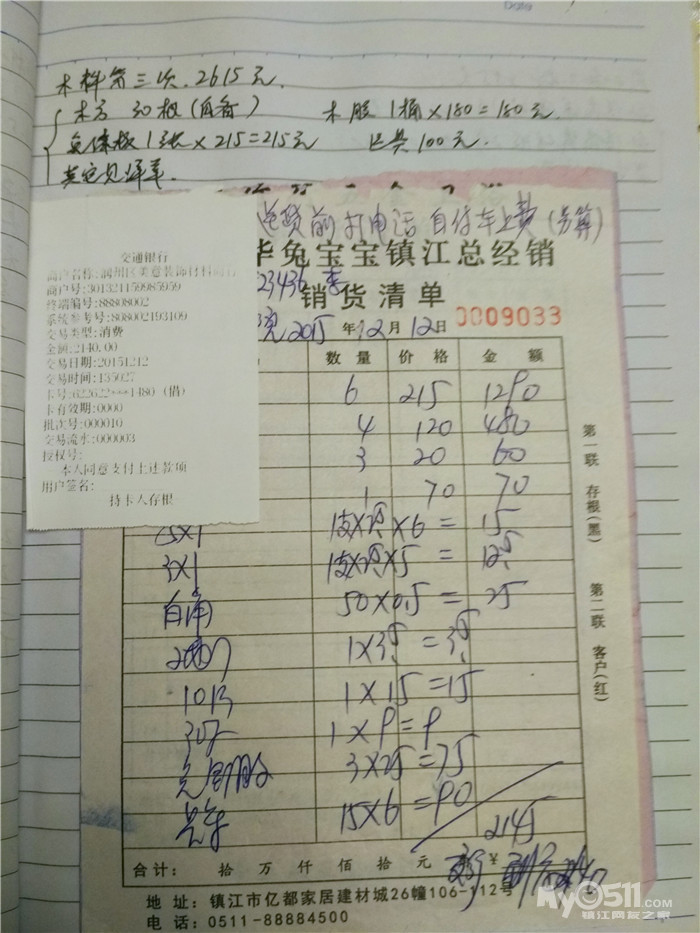 Date
木料第三次.2615元.
木方 30根(自备) 木胶 1桶×180=180元.
1张×215=215元 100元.
送货前打电话 自付车上费(另算)
华兔宝宝镇江总经销
23436 李
销货清单
2015年12月12日 0009033
数量 价格 金额
6 215 1290
4 120 480
3 20 60
1 70 70
交通银行
商户名称:润州区美意装饰材料商行
商户号:301321159985959
终端编号:88808002
系统参考号:808002193109
交易类型:消费
金额:2140.00
交易日期:20151212
交易时间:135027
卡号:622622***1480 (借)
卡有效期:0000
批次号:000010
交易流水:000003
授权号:
本人同意支付上述款项
用户签名:
持卡人存根
×6= 15
3×1 ×5=
50×0.5= 25
1×3.5=3.5
1×15=15
1×9=9
3×25=75
15×6=90
2145
合计: 拾 万 仟 佰 拾 元 ¥
地址:镇江市亿都家居建材城26幢106-112号
电话:0511-88884500
第一联 存根(黑) 第二联 客户(红)
my0511.com
镇江网友之家